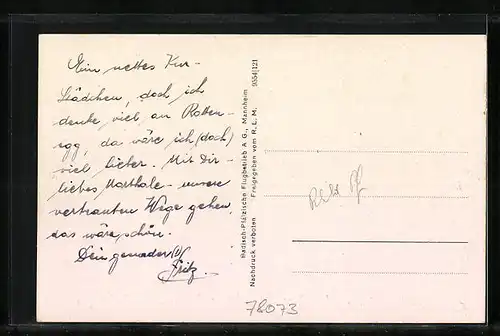 Ein nettes Kur-
städchen, doch ich
denke viel an Rotten-
egg, da wäre ich (doch)
viel lieber. Mit Dir-
liebes Marthale - unsere
vertrauten Wege gehen,
das wäre schön.
Dein
Fritz.
Badisch-Pfälzische Flugbetrieb A G., Mannheim 9554/121
Nachdruck verboten Freigegeben vom R. L. M.
78073